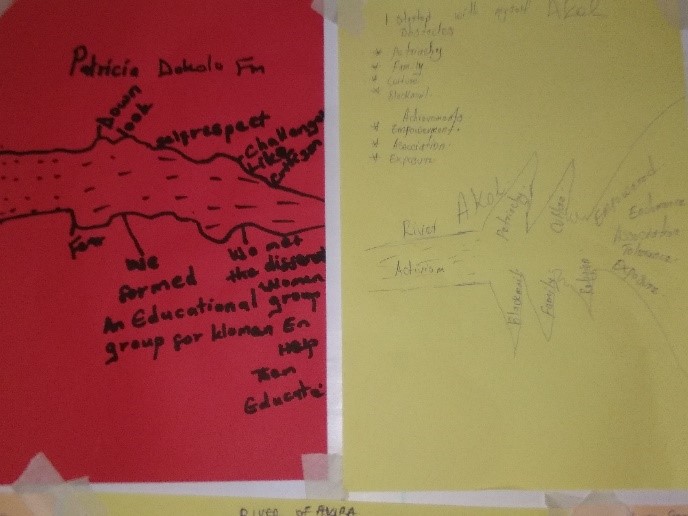 Patricia Dokolo Fm
Down
look
challenges
like
Fear
We
formed
An Educational
group for Women En
We met
the
Women
group
Help
Them
Educate
I started with myself Akol
Obstacles
* Patriarchy
* Family
* Culture
* Blackmail
Achievements
* Empowerment
* Association
* Exposure
River Akol
Activism
Patriarchy
Culture
Blackmail
Family
Empowered
Endurance
Association
Tolerance
Exposure
RIVER OF AKIRA